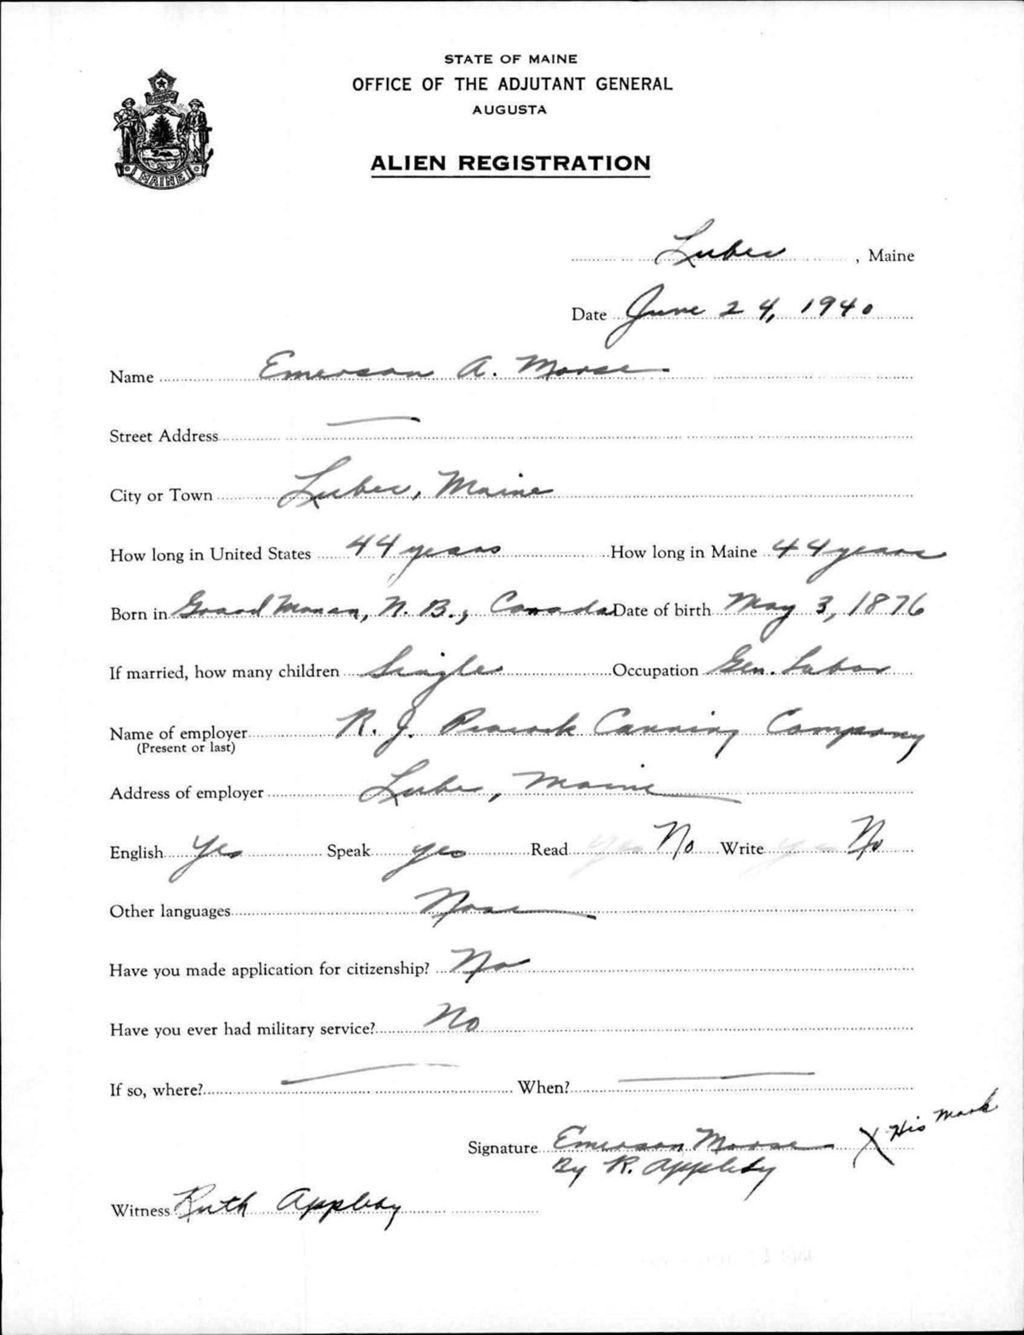 STATE OF MAINE
OFFICE OF THE ADJUTANT GENERAL
AUGUSTA
ALIEN REGISTRATION
MAINE
Lubec, Maine
Date June 24, 1940
Name Emerson A. Morse
Street Address
City or Town Lubec, Maine
How long in United States 44 years How long in Maine 44 years
Born in Grand Manan, N. B., Canada Date of birth May 3, 1876
If married, how many children Single Occupation Gen. Labor
Name of employer R. J. Peacock Canning Company
(Present or last)
Address of employer Lubec, Maine
English Yes Speak yes Read yes No Write yes No
Other languages None
Have you made application for citizenship? No
Have you ever had military service? No
If so, where? When?
Signature Emerson Morse X His Mark
By R. Appleby
Witness Ruth Appleby